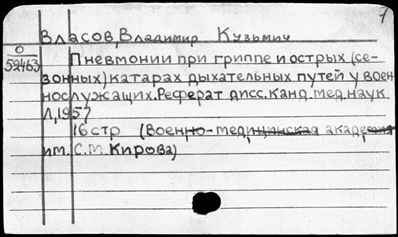 1
Власов, Владимир Кузьмич
О
52463
Пневмонии при гриппе и острых (се-
зонных) катарах дыхательных путей у воен
нослужащих. Реферат дисс. канд. мед. наук
Л, 1957
16 стр (Военно-медицинская академия
им. С.М. Кирова)